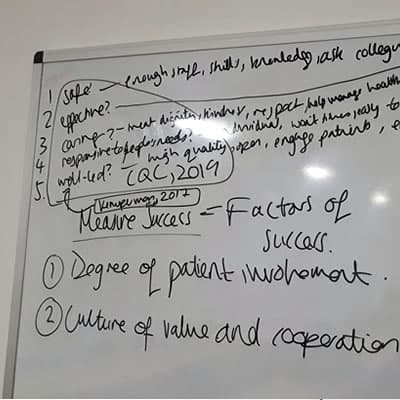 1 safe - enough staff, skills, knowledge, ask colleagu
2 effective? -
3 caring? - treat dignity, kindness, respect, help manage health
4 responsive to peoples needs? - individual, wait times, easily to
5. well-led? - high quality, open, engage patients, e
CQC, 2019
2017
Measure Success = Factors of
success.
① Degree of patient involvement.
② Culture of value and cooperation